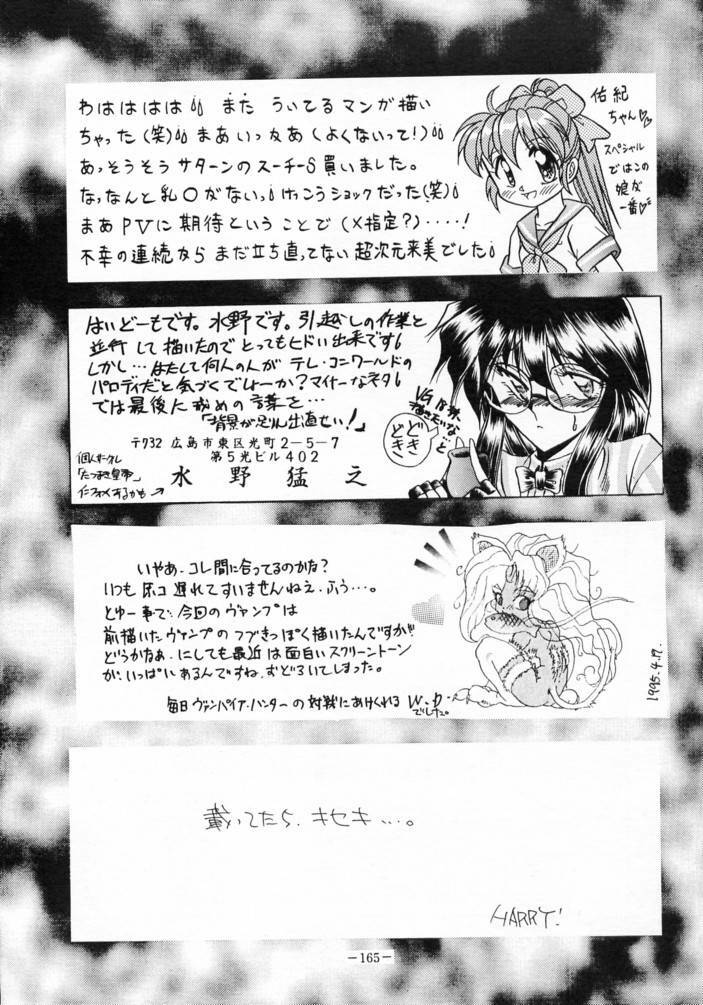 わはははは!! また ういてるマンガ描い
ちゃった(笑)!! まあいっかあ(よくないって!)!!
あっそうそう サターンのスーチーS買いました。
なっなんと乳〇がないっ! けっこうショックだった(笑)!
まあPVに期待ということで(X指定?)‥‥!
不幸の連続から まだ立ち直ってない 超次元来美でした!
佑紀
ちゃん♡
スペシャル
ではこの
娘が
一番♡
はいどーもです。水野です。引越しの作業と
並行して描いたのでとってもヒドい出来です!
しかし…はたして何人の人がテレ・コンワールドの
パロディだと気づくでしょーか?マイナーなネタ!
では最後に戒めの言葉を…
「背景が足りん出直せい!」
〒732 広島市東区光町2-5-7
第5光ビル402
水野猛之
個人サークル
「たつまき皇帝」
VG
描きたいな…と
どき
どき
いやあ、コレ間に合ってるのかな?
いつも 原コ 遅れてすいませんねえ、ふう…。
とゆー事で、今回のヴァンプは
前描いたヴァンプのつづきっぽく描いたんですが!!
どうかなぁ、にしても最近は面白いスクリーントーン
が、いっぱいあるんですね、おどろいてしまった。
毎日ヴァンパイア・ハンターの対戦にあけくれる W.D
でした。
1995.4.17.
載ってたら、キセキ…。
HARRY!
-165-